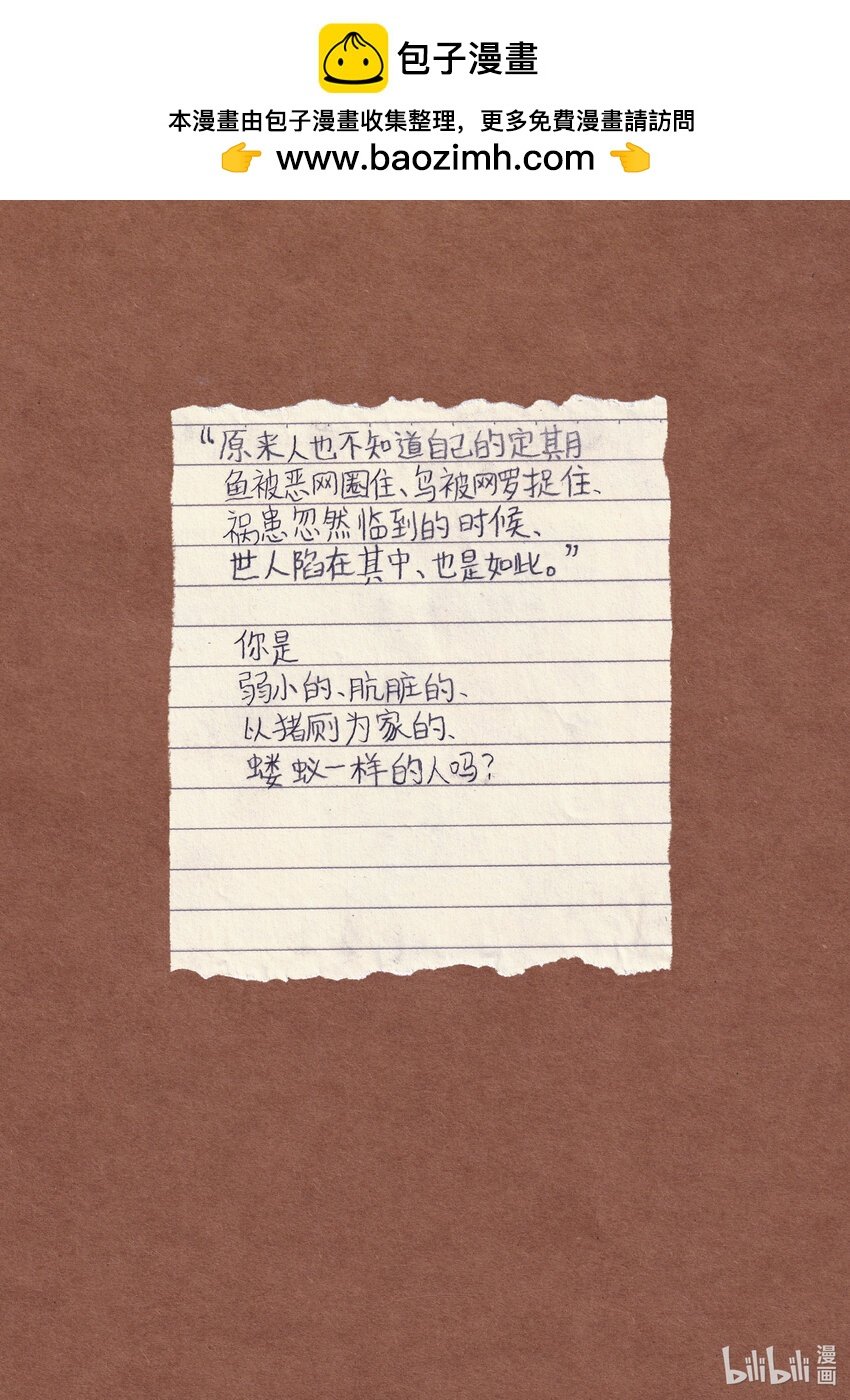 包子漫畫
本漫畫由包子漫畫收集整理，更多免費漫畫請訪問
👉 www.baozimh.com 👈
“原来人也不知道自己的定期
鱼被恶网圈住、鸟被网罗捉住、
祸患忽然临到的时候、
世人陷在其中、也是如此。”
你是
弱小的、肮脏的、
以猪厕为家的、
蝼蚁一样的人吗？
bilibili 漫画